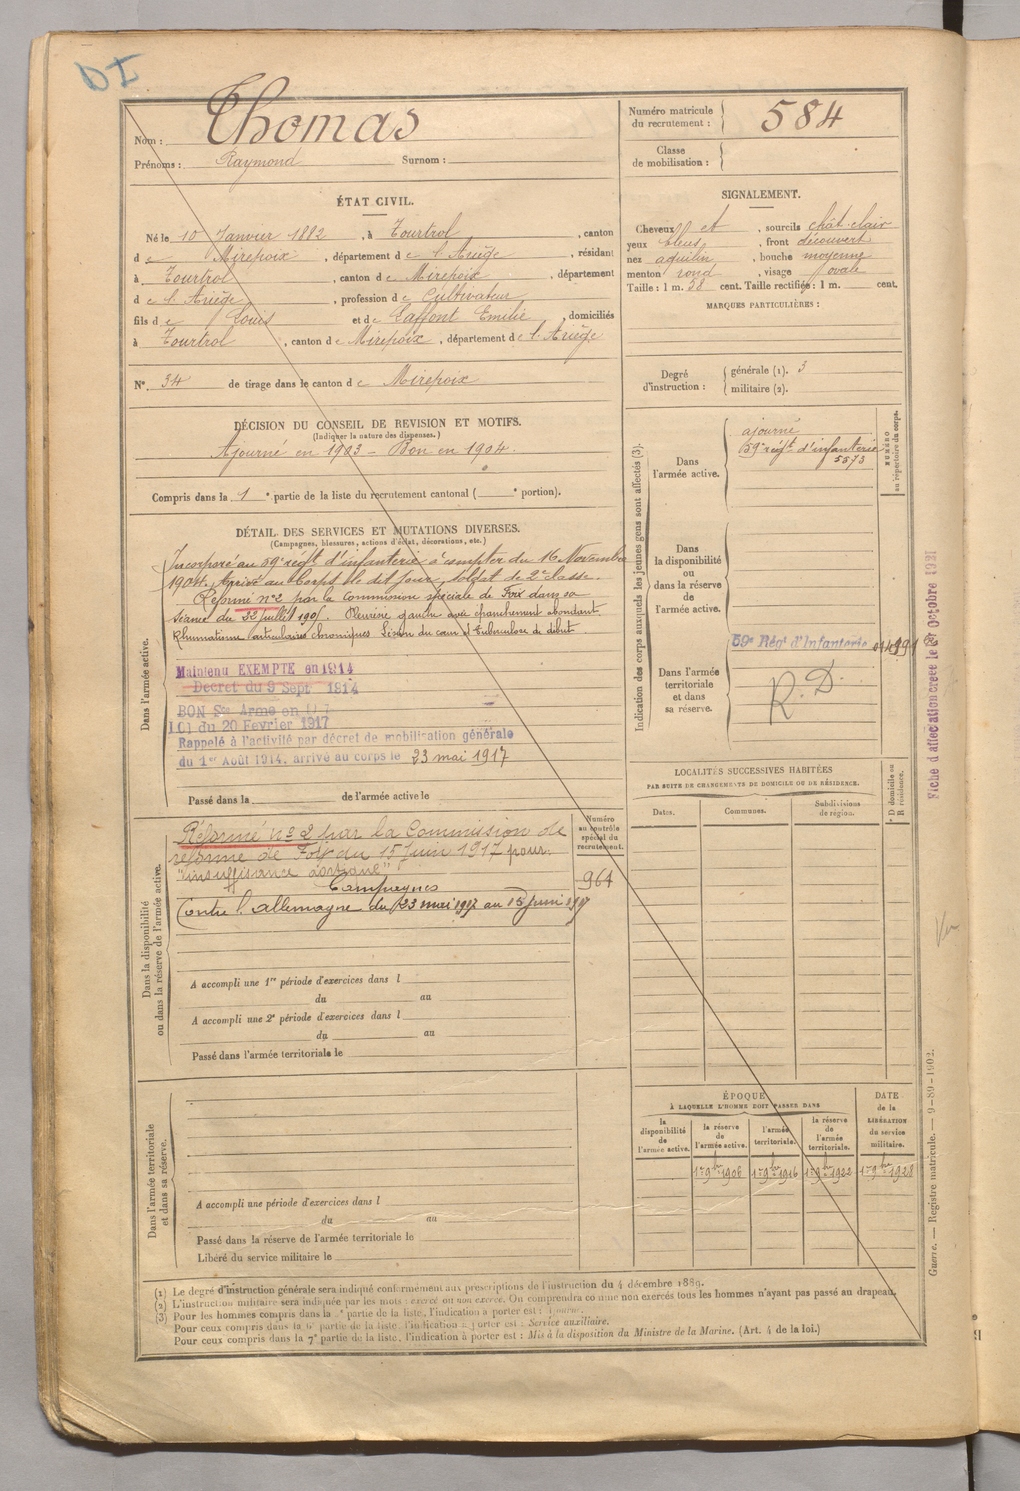 Nom : Thomas
Prénoms : Raymond Surnom :
Numéro matricule du recrutement : 584
Classe de mobilisation :
ÉTAT CIVIL.
Né le 10 Janvier 1882, à Tourtrol, canton
de Mirepoix, département de l'Ariège, résidant
à Tourtrol, canton de Mirepoix, département
de l'Ariège, profession de Cultivateur
fils de Louis et de Laffont Emilie, domiciliés
à Tourtrol, canton de Mirepoix, département de l'Ariège
N° 34 de tirage dans le canton de Mirepoix
SIGNALEMENT.
Cheveux et, sourcils chât. clair
yeux bleus, front découvert
nez aquilin, bouche moyenne
menton rond, visage ovale
Taille : 1 m. 58 cent. Taille rectifiée : 1 m. cent.
MARQUES PARTICULIÈRES :
Degré d'instruction : générale (1). 3
militaire (2).
DÉCISION DU CONSEIL DE REVISION ET MOTIFS.
(Indiquer la nature des dispenses.)
Ajourné en 1903 - Bon en 1904.
Compris dans la 1e partie de la liste du recrutement cantonal ( e portion).
DÉTAIL DES SERVICES ET MUTATIONS DIVERSES.
(Campagnes, blessures, actions d'éclat, décorations, etc.)
Dans l'armée active.
Incorporé au 59e régt d'infanterie à compter du 16 Novembre
1904. Arrivé au Corps le dit jour, soldat de 2e classe.
Réformé n°2 par la Commission spéciale de Foix dans sa
séance du juillet 1905. Pleurésie gauche avec épanchement abondant.
Rhumatisme articulaire chronique. Lésion du cœur et tuberculose de début.
Maintenu EXEMPTE en 1914
Décret du 9 Sept 1914
BON Sce Armé en 17
LOI du 20 Fevrier 1917
Rappelé à l'activité par décret de mobilisation générale
du 1er Août 1914, arrivé au corps le 23 mai 1917
Passé dans la de l'armée active le
Indication des corps auxquels les jeunes gens sont affectés (3).
NUMÉRO au répertoire du corps.
Dans l'armée active.
ajourné
59e régt d'infanterie
5573
Dans la disponibilité ou dans la réserve de l'armée active.
Dans l'armée territoriale et dans sa réserve.
59e Régt d'Infanterie
R. D.
Fiche d'affectation créée le 1er Octobre 1931
Dans la disponibilité ou dans la réserve de l'armée active.
Numéro au contrôle spécial du recrutement.
964
Réformé n° 2 par la Commission de
réforme de Foix du 15 Juin 1917 pour
"insuffisance aortique"
Campagnes
Contre l'allemagne du 23 mai 1917 au 15 juin 1917
A accompli une 1re période d'exercices dans l
du au
A accompli une 2e période d'exercices dans l
du au
Passé dans l'armée territoriale le
LOCALITÉS SUCCESSIVES HABITÉES
PAR SUITE DE CHANGEMENTS DE DOMICILE OU DE RÉSIDENCE.
Dates. Communes. Subdivisions de région. D domicile ou R résidence.
Vu
Dans l'armée territoriale et dans sa réserve.
A accompli une période d'exercices dans l
du au
Passé dans la réserve de l'armée territoriale le
Libéré du service militaire le
ÉPOQUE
À LAQUELLE L'HOMME DOIT PASSER DANS
la disponibilité de l'armée active. la réserve de l'armée active. l'armée territoriale. la réserve de l'armée territoriale. DATE de la LIBÉRATION du service militaire.
1er 9bre 1906 1er 9bre 1916 1er 9bre 1922 1er 9bre 1928
Guerre. — Registre matricule. — 9-89-1902.
(1) Le degré d'instruction générale sera indiqué conformément aux prescriptions de l'instruction du 4 décembre 1889.
(2) L'instruction militaire sera indiquée par les mots : exercé ou non exercé. On comprendra comme non exercés tous les hommes n'ayant pas passé au drapeau.
(3) Pour les hommes compris dans la partie de la liste, l'indication à porter est : Ajourné.
Pour ceux compris dans la 6e partie de la liste, l'indication à porter est : Service auxiliaire.
Pour ceux compris dans la 7e partie de la liste, l'indication à porter est : Mis à la disposition du Ministre de la Marine. (Art. 4 de la loi.)